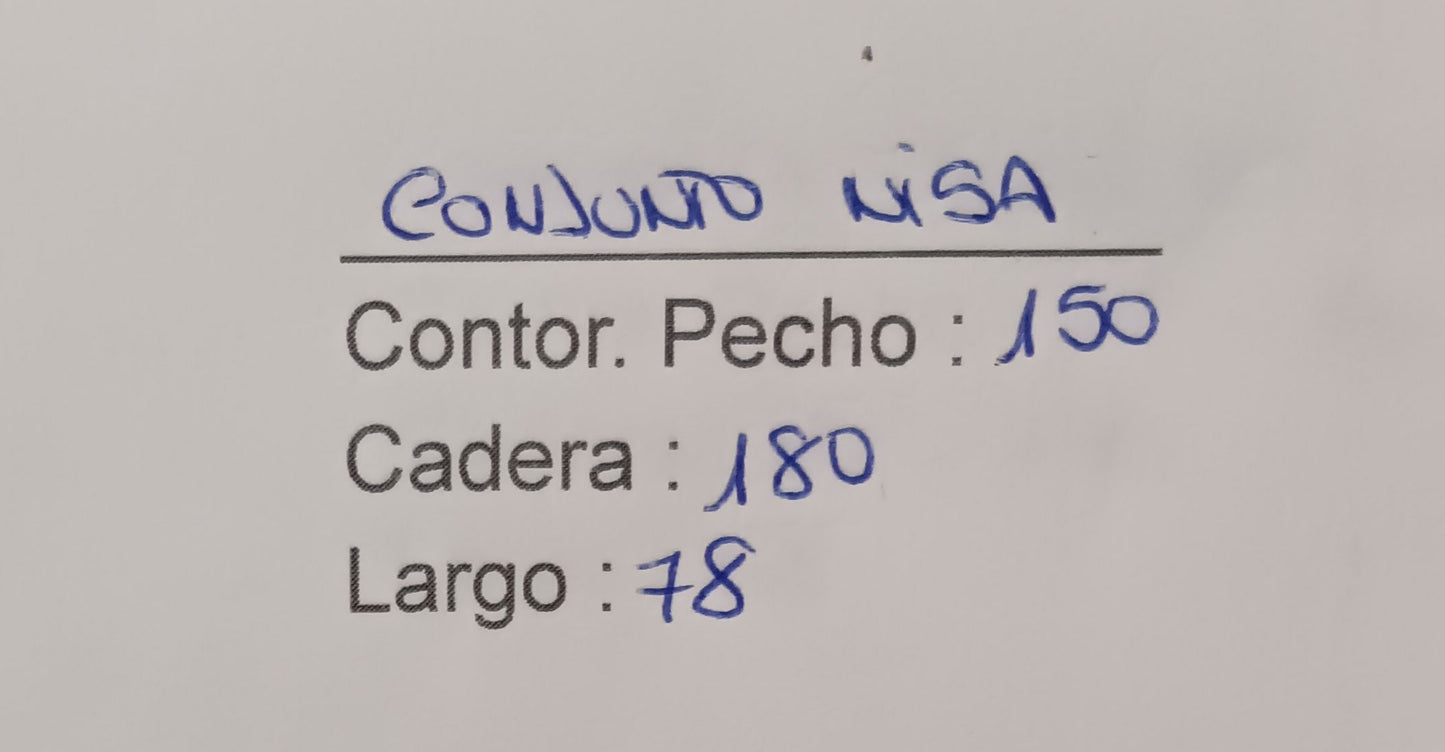 CONJUNTO NiSA
Contor. Pecho : 150
Cadera : 180
Largo : 78